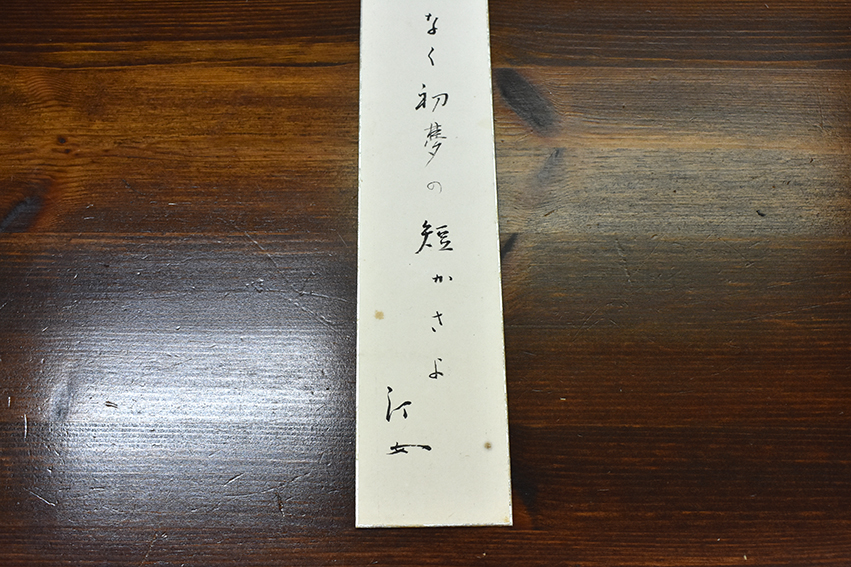 なく初夢の短かさよ
汀女